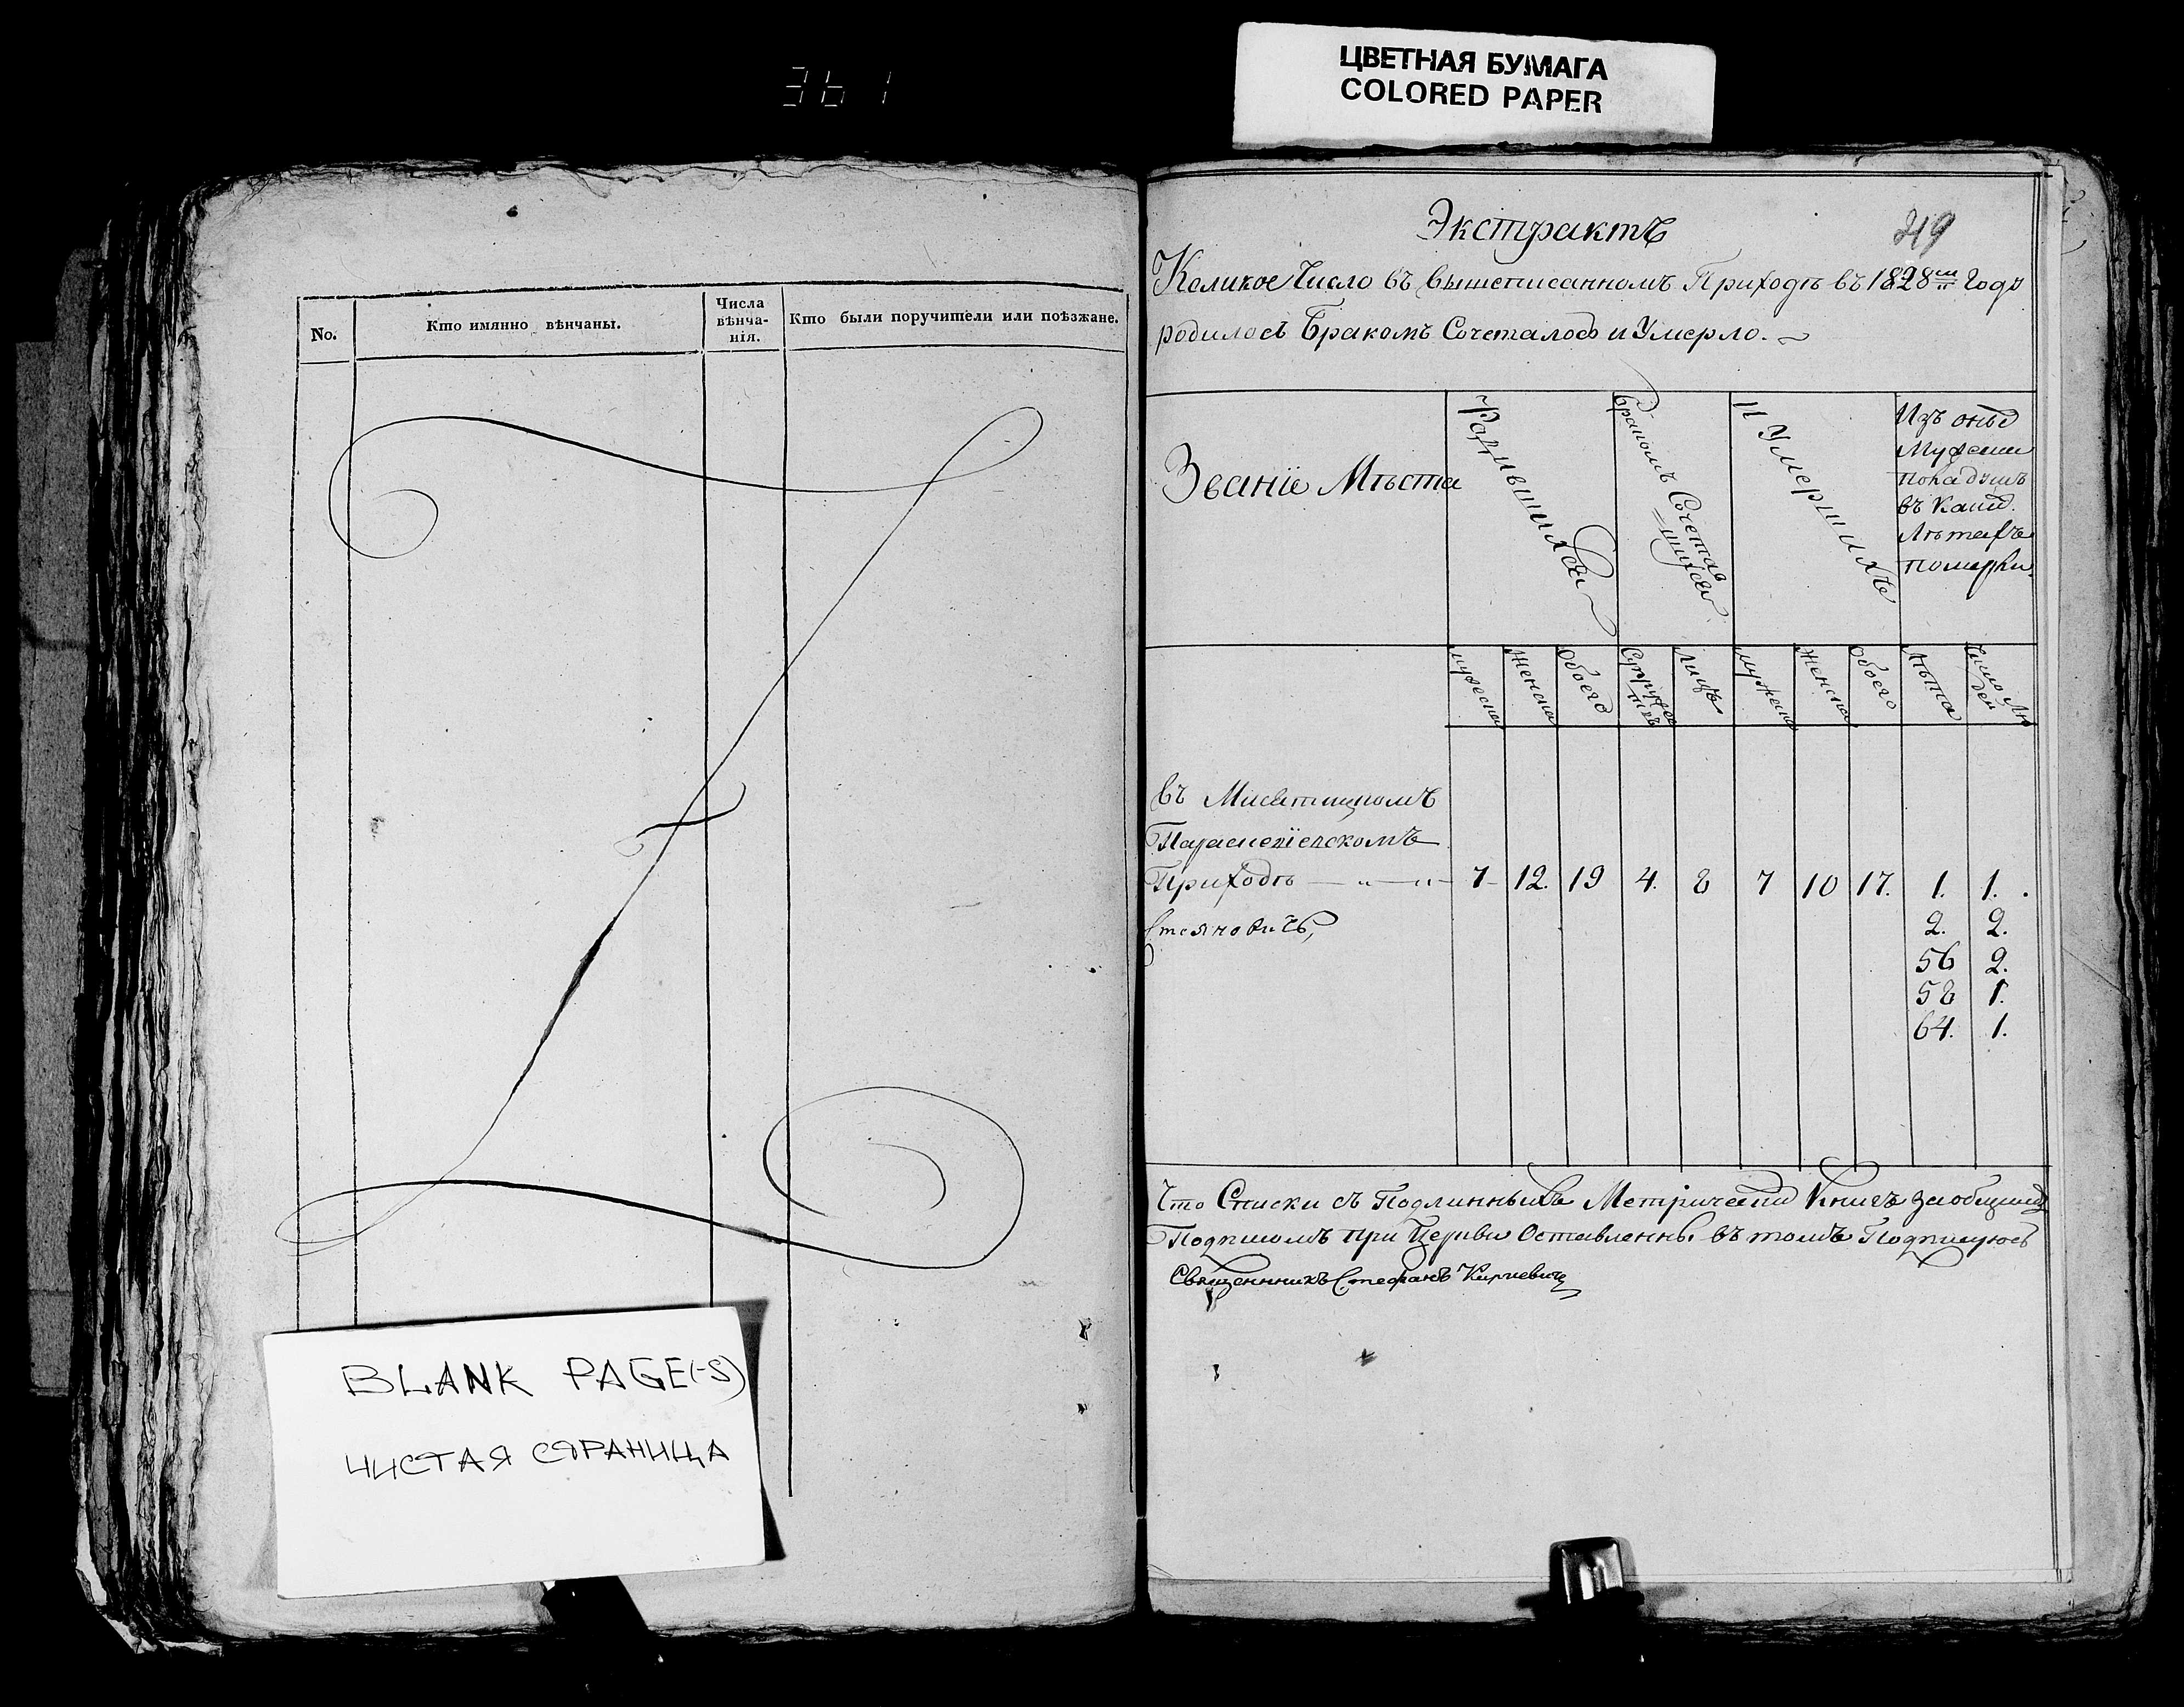 361
ЦВЕТНАЯ БУМАГА
COLORED PAPER
No.
Кто имянно вѣнчаны.
Числа
вѣнча-
нія.
Кто были поручители или поѣзжане.
BLANK PAGE(-S)
ЧИСТАЯ СТРАНИЦА
Экстрактъ
219
Коликое Число въ вышеписанномъ Приходѣ въ 1828мъ Годѣ
родилось Бракомъ Сочеталось и Умерло.
Званіе Мѣста
Родившихся
Бракомъ Сочетав
=шихся
И Умершихъ
Изъ оныхъ
Мужеска
пола душъ
въ каких
Лѣтахъ
померли.
мужеска
Женска
Обоего
Супружес
твъ
Лицъ
мужеска
Женска
Обоего
Лѣта
Число лю
дей
въ
Параскевіевскомъ
Приходѣ — „ — „ — 7 12. 19 4. 8 7 10 17. 1. 1.
2. 2.
56 2.
58 1.
64. 1.
Что Списки съ Подлинныхъ Метрическихъ Книгъ за общимъ
Подписомъ при Церкви Оставленны въ томъ Подписуюсь
Священникъ Стефанъ Кириевичъ